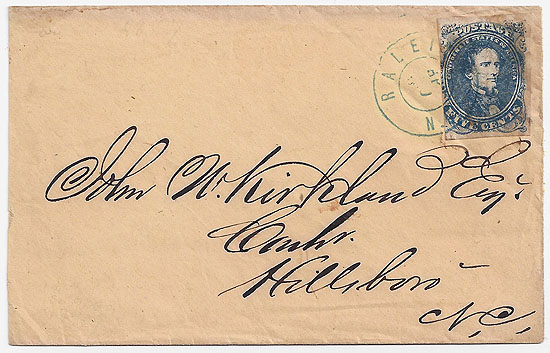 POSTAGE
CONFEDERATE STATES OF AMERICA
FIVE CENTS
RALEI
N
John W. Kirkland Esqr.
Cashr.
Hillsboro
N.C.